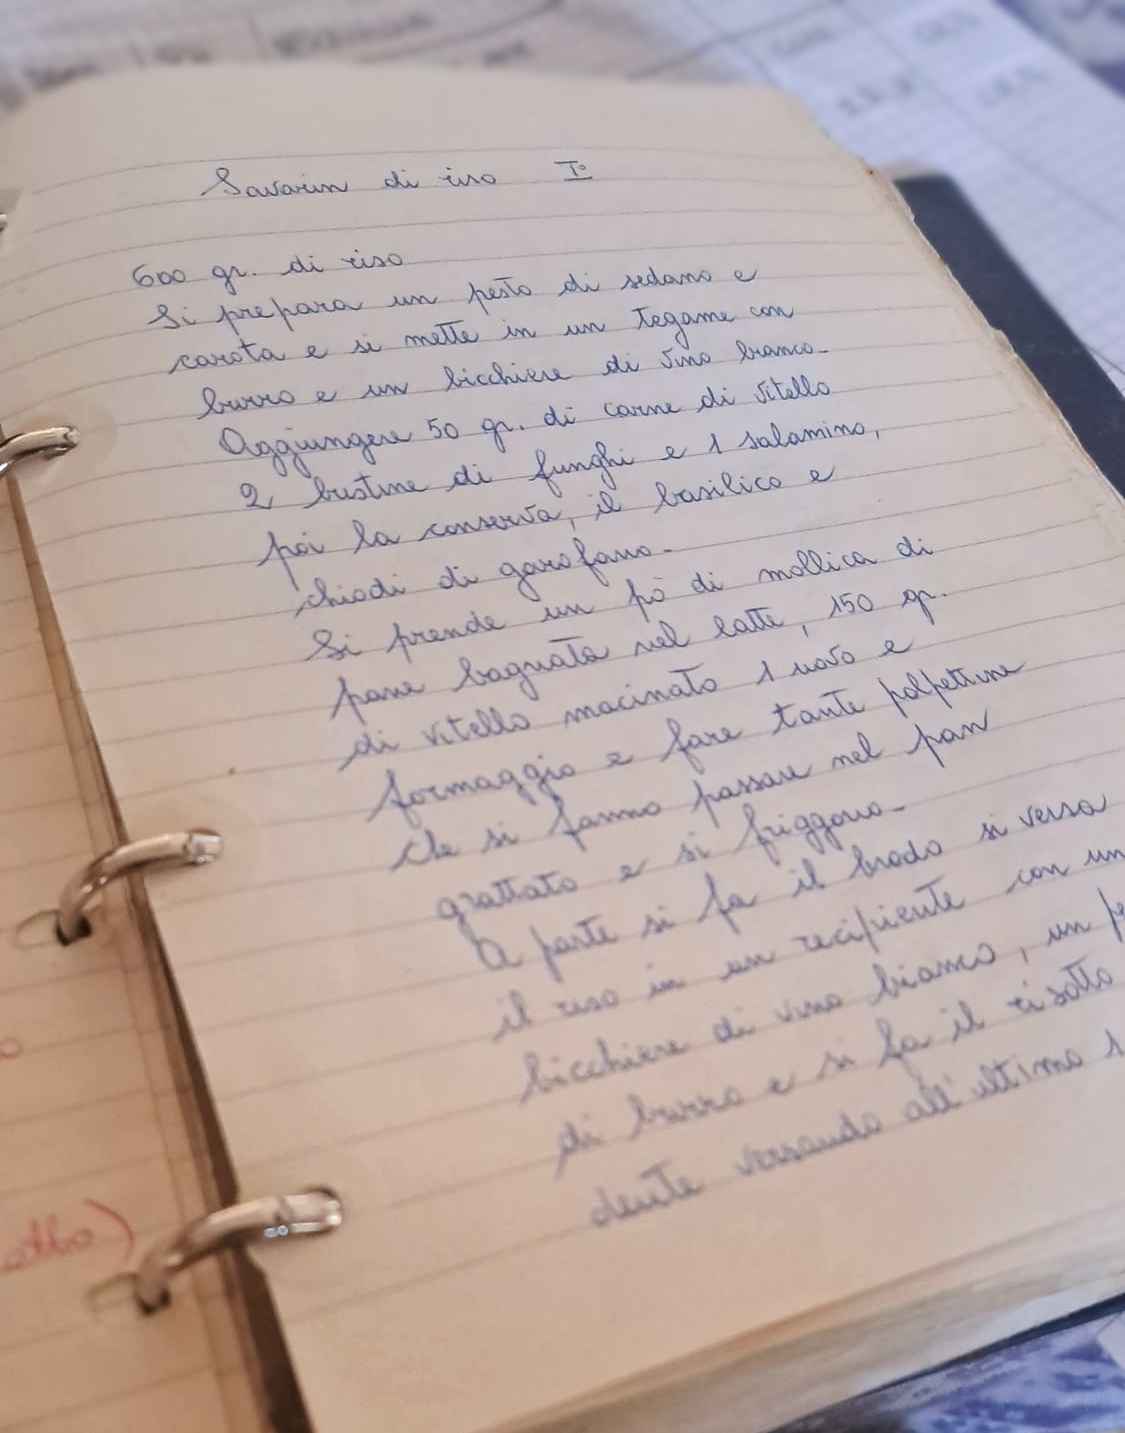 Savarin di riso I°
600 gr. di riso
Si prepara un pesto di sedano e
carota e si mette in un tegame con
burro e un bicchiere di vino bianco-
Aggiungere 50 gr. di carne di vitello
2 bustine di funghi e 1 salamino,
poi la conserva, il basilico e
chiodi di garofano-
Si prende un pò di mollica di
pane bagnata nel latte, 150 gr.
di vitello macinato 1 uovo e
formaggio e fare tante polpettine
che si fanno passare nel pan
grattato e si friggono-
A parte si fa il brodo si versa
il riso in un recipiente con un
bicchiere di vino bianco, un
di burro e si fa il risotto
dente versando all'ultimo 1